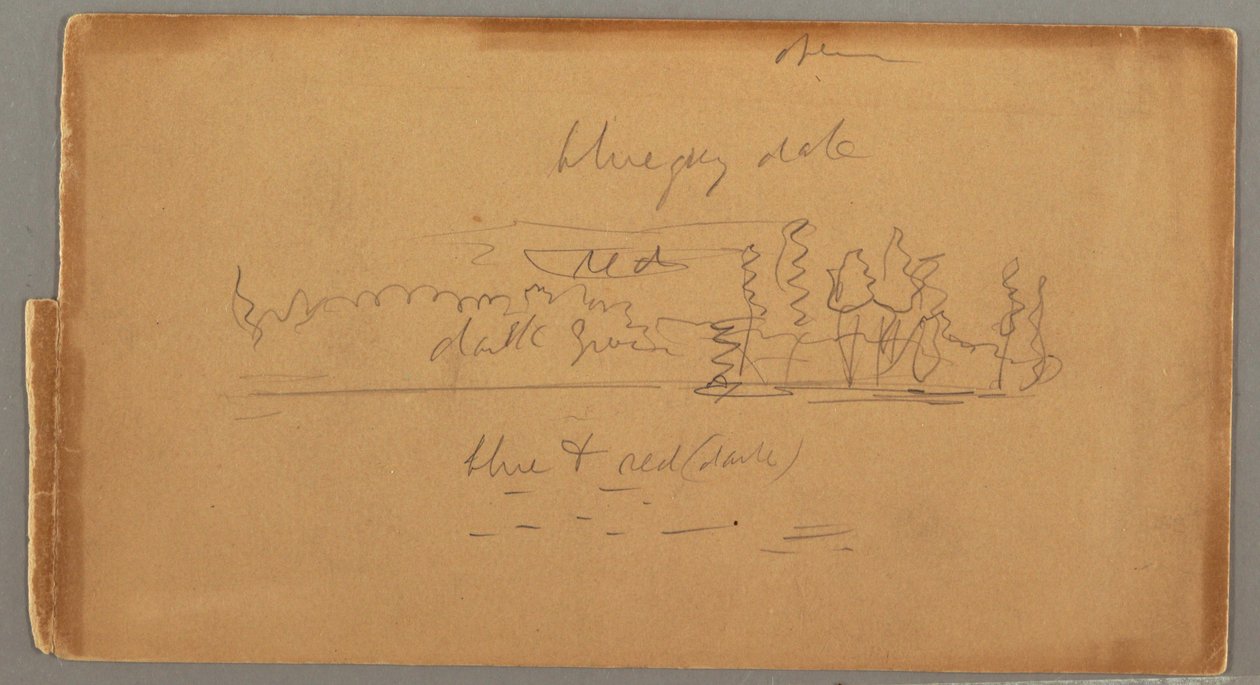 open
blue grey dark
red
dark green
blue & red (dark)